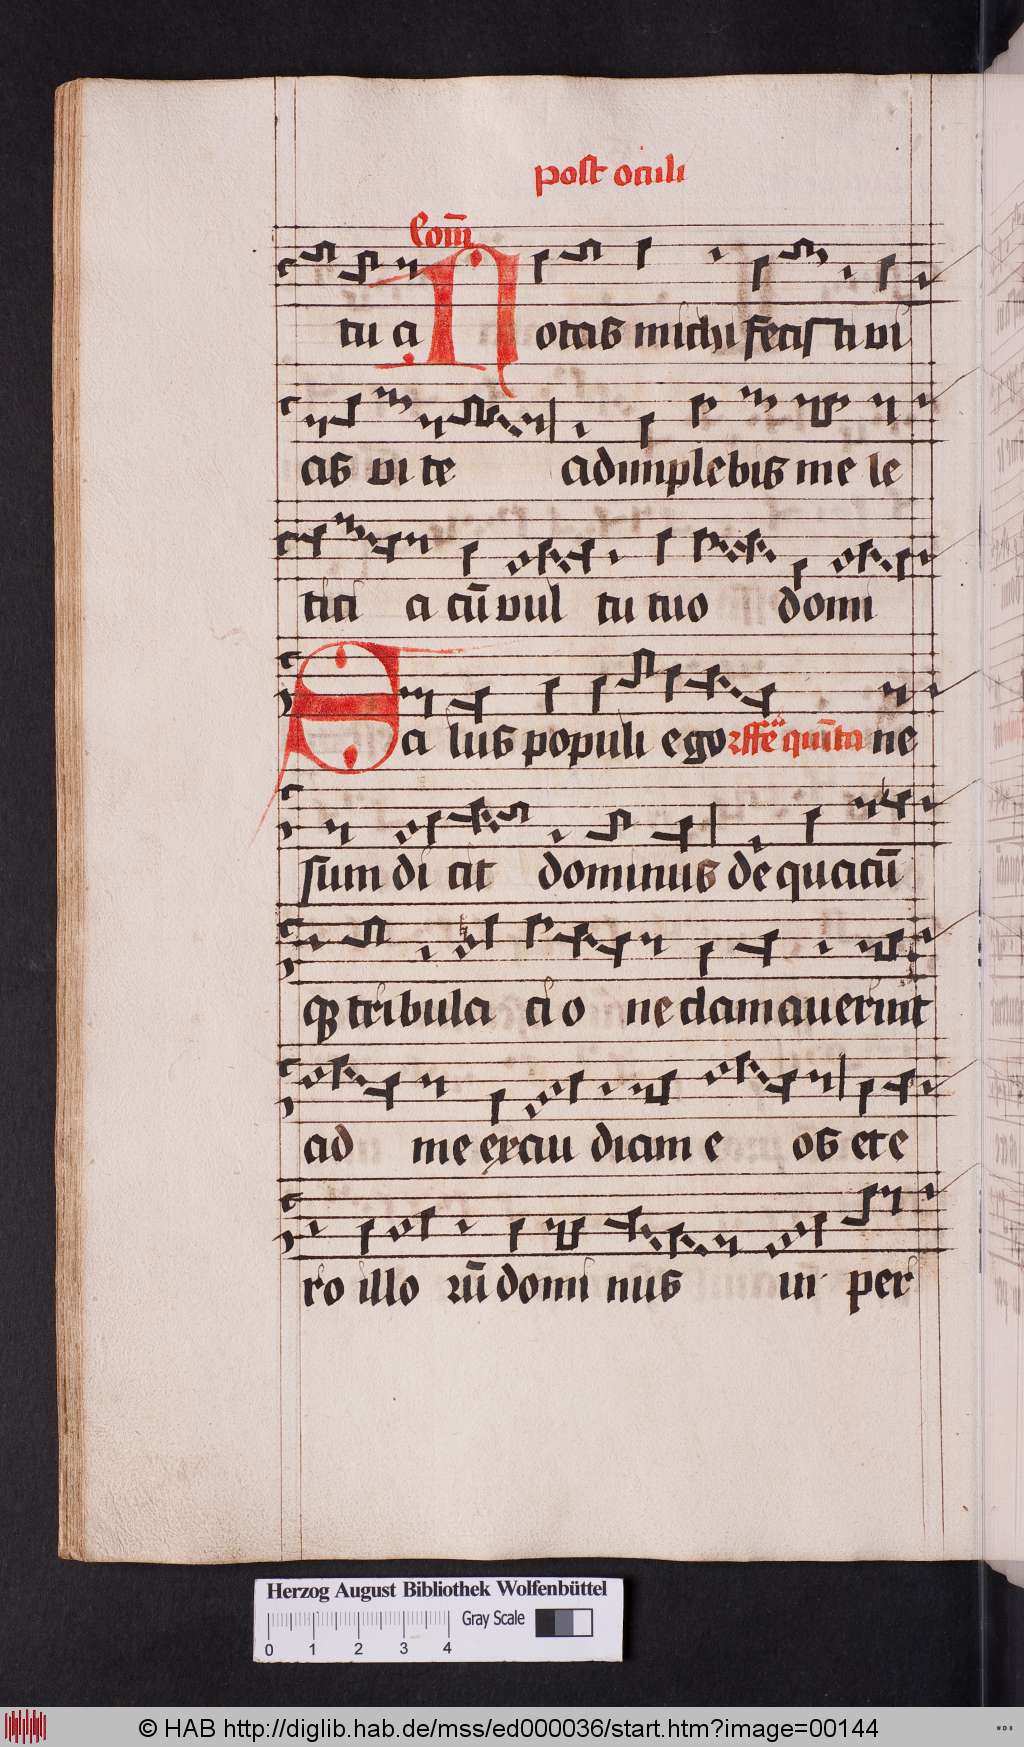 post oculi
Com̄
tu a Notas michi fecisti vi
as vi te adimplebis me le
tici a cū vul tu tuo domi
Sa lus populi ego 2 ffe quīta ne
sum di cit dominus de quacū
qȝ tribula ci o ne clamauerint
ad me exau diam e os et e
ro illo rū domi nus in per
Herzog August Bibliothek Wolfenbüttel
Gray Scale
0 1 2 3 4
© HAB http://diglib.hab.de/mss/ed000036/start.htm?image=00144